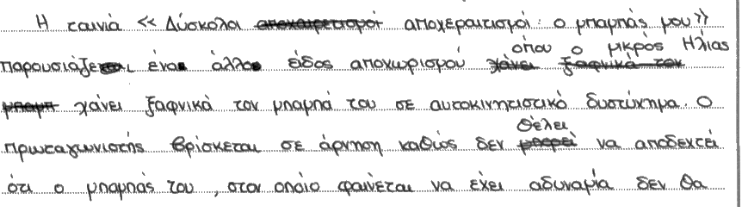 Η ταινία << Δύσκολοι αποχαιρετισμοί αποχεραιτισμοί: ο μπαμπάς μου>>
παρουσιάζεται ένα άλλο είδος αποχωρισμού όπου ο μικρός Ηλίας
χάνει ξαφνικά τον μπαμπά του σε αυτοκινητιστικό δυστύχημα. Ο
πρωταγωνιστής βρίσκεται σε άρνηση καθώς δεν θέλει να αποδεχτεί
ότι ο μπαμπάς του, στον οποίο φαίνεται να έχει αδυναμία δεν θα